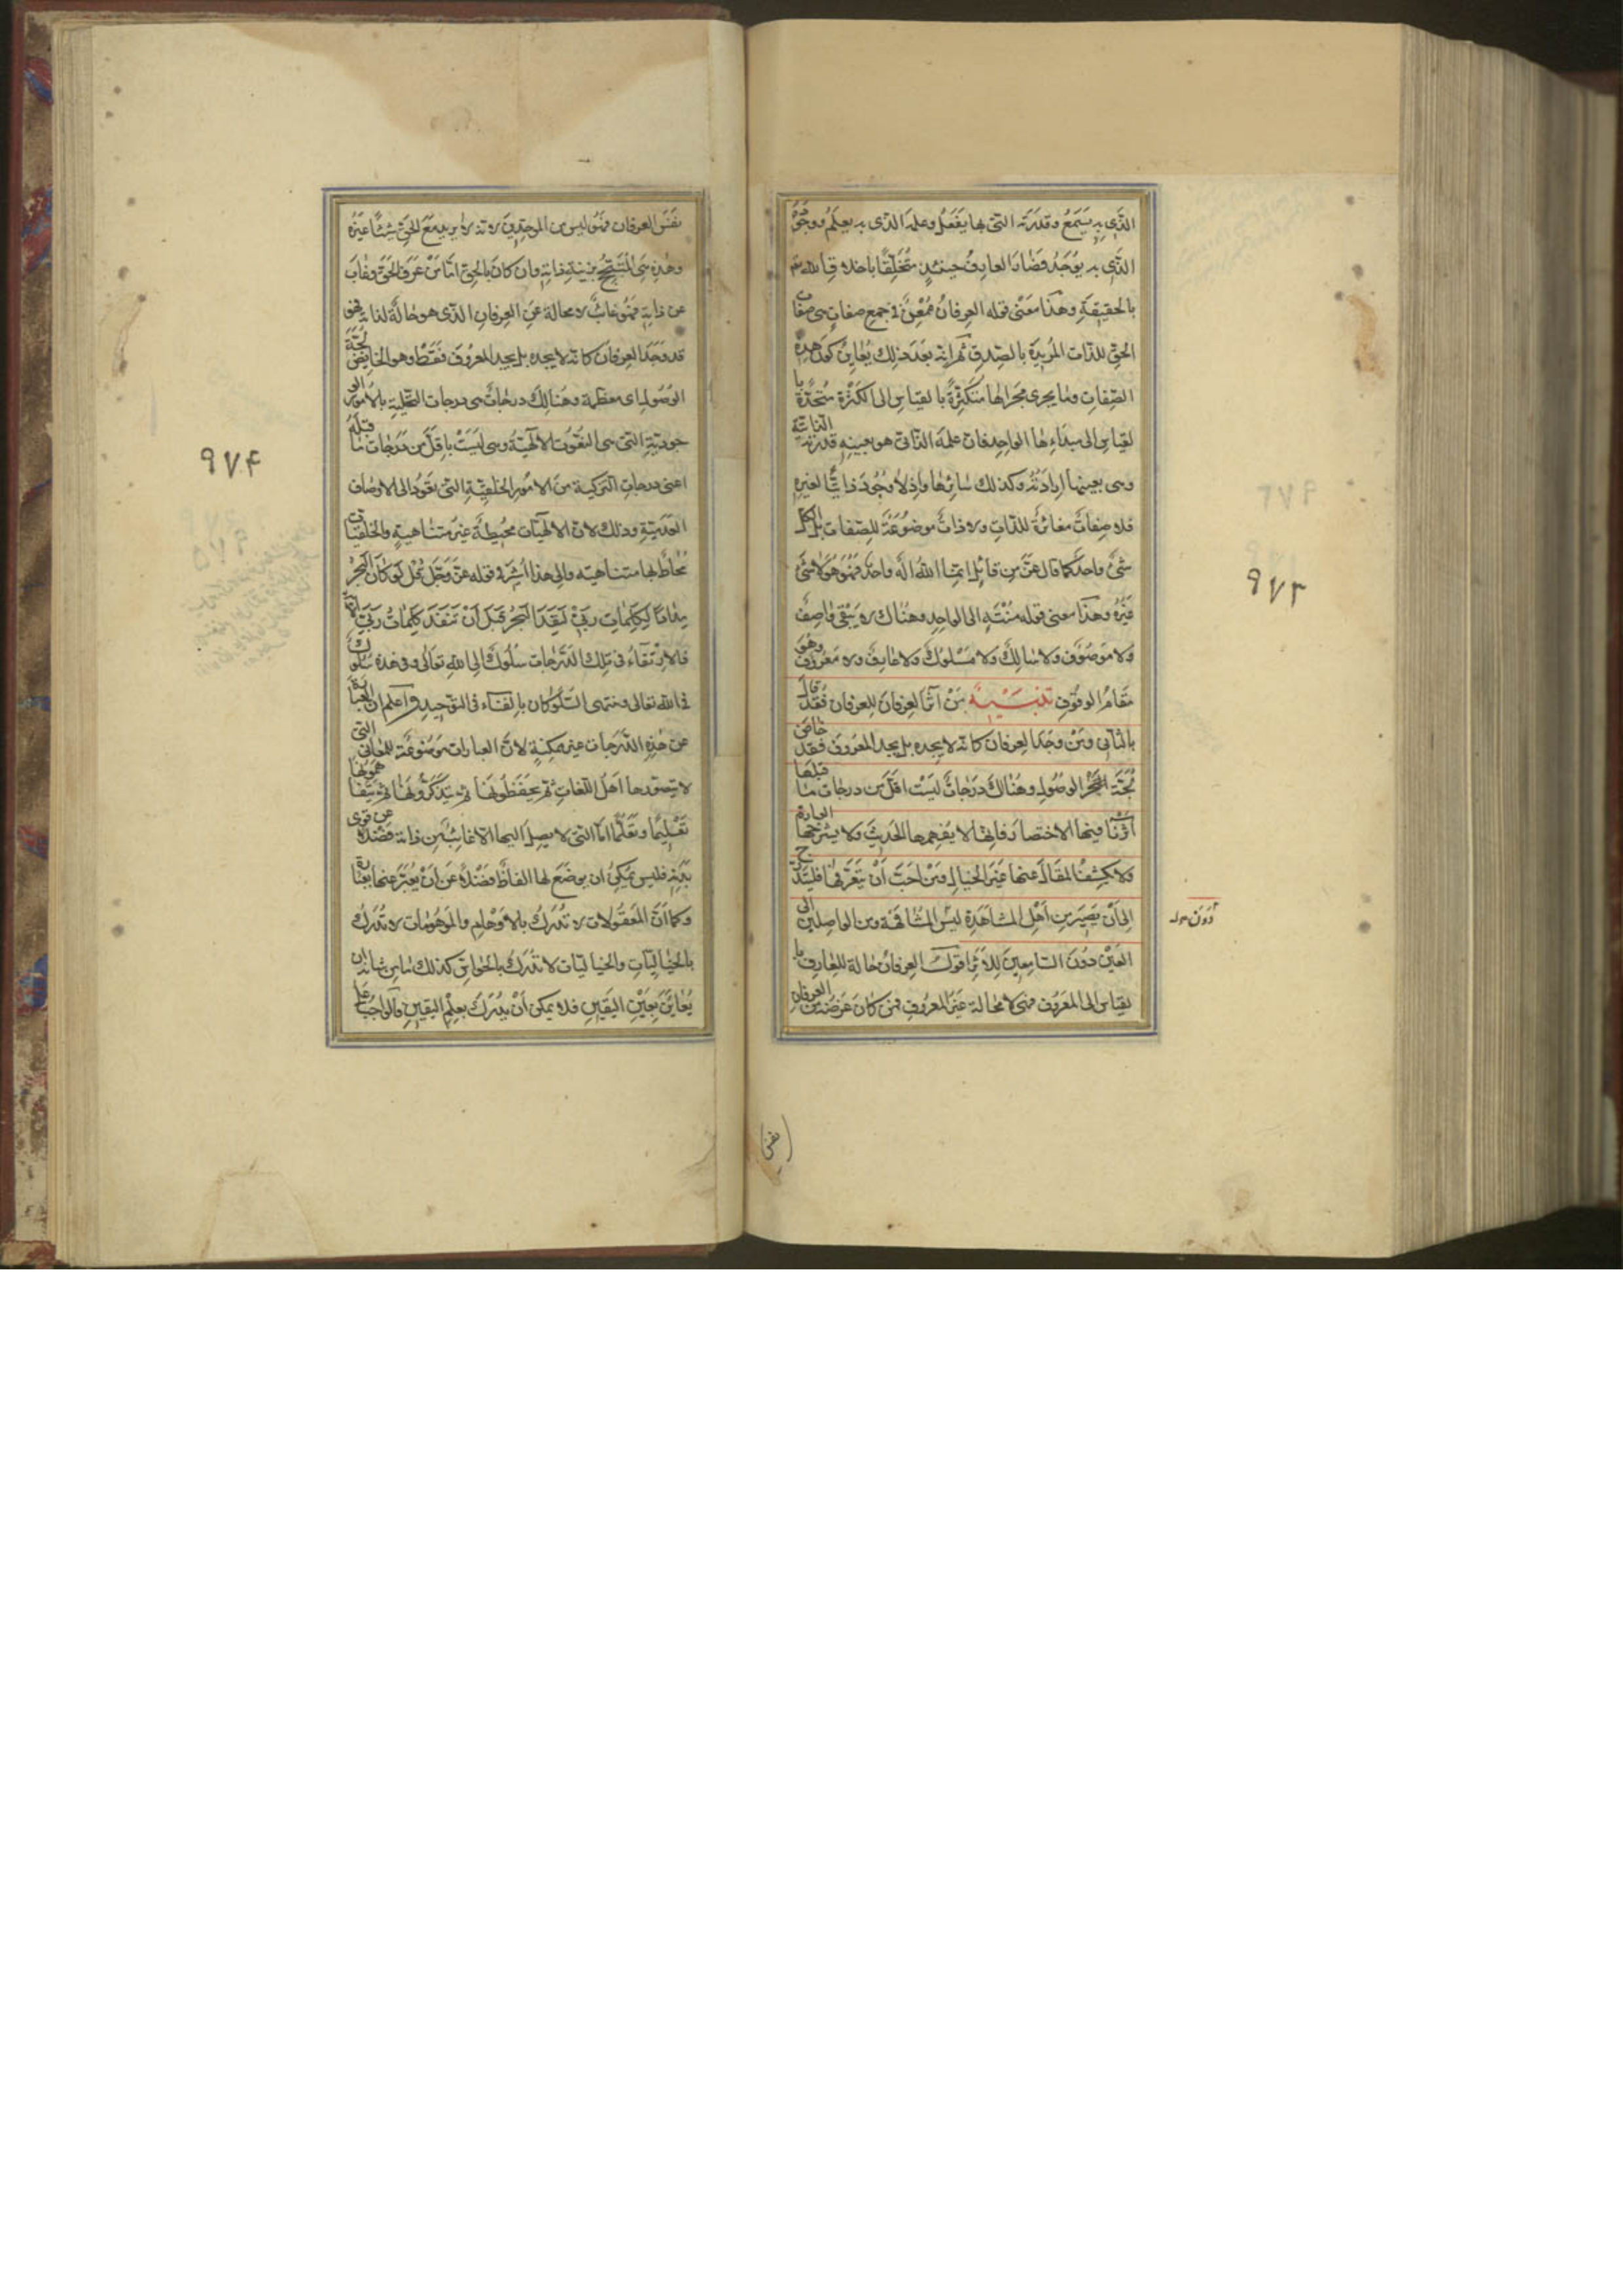 الذی به یسمع و قدرته التی بها یفعل و علمه الذی به یعلم و وجوده
الذی به یوجد فصار العارف حینئذ متخلقا باخلاق الله تعالی
بالحقیقة و هذا معنی قوله العرفان ممعن فی جمع صفات هی صفات
الحق للذات المریدة بالصدق ثم انه بعد ذلک یعاین کون هذه
الصفات و ما یجری مجراها متکثرة بالقیاس الی الکثرة متحدة با
لقیاس الی مبداءها الواحد فان علمه الذاتی هو بعینه قدرته الذاتیة
و هی بعینها ارادته و کذلک سائرها و اذ لا وجود ذاتیا لغیره
فلا صفات مغائرة للذات و لا ذات موضوعة للصفات بل الکل
شیء واحد کما قال عز من قائل انما الله اله واحد فهو هو لا شیء
غیره و هذا معنی قوله منته الی الواحد و هناک لا یبقی واصف
و لا موصوف و لا سالک و لا مسلوک و لا عارف و لا معروف و هو
مقام الوقوف تنبیه من آثر العرفان للعرفان فقد قال
بالثانی و من وجد العرفان کانه لا یجده بل یجد المعروف فقد خاض
لجة الوصول و هناک درجات لیست اقل من درجات ما قبلها
آثرنا فیها الاختصار فانها لا یفهمها الحدیث و لا یشرحها العبارة
و لا یکشف المقال عنها غیر الخیال و من احب ان یتعرفها فلیتدرج
الی ان یصیر من اهل المشاهدة لیس المشافهة و من الواصلین الی
العین دون السامعین للاثر اقول العرفان حالة للعارف با
لقیاس الی المعروف فهی لا محالة غیر المعروف فمن کان غرضه من العرفان
دون
۹۷۳
نفس
نفس العرفان فهو لیس من الموحدین لانه یرید مع الحق شیئا غیره
و هذه هی المتبجح بزینة ذاته و ان کان بالحق اما من عرف الحق و غاب
عن ذاته فهو غائب لا محالة عن العرفان الذی هو حالة لذاته فهو
قد وجد العرفان کانه لا یجده بل یجد المعروف فقط و هو الخایض لجة
الوصول ای معظمه و هنالک درجات هی درجات التحلیة بالامور الو
جودیة التی هی النعوت الالهیة و هی لیست باقل من درجات ما قبله
اعنی درجات التزکیة من الامور الخلقیة التی یعود الی الاوصاف
العدمیة و ذلک لان الالهیات محیطة غیر متناهیة و الخلقیات
محاط بها متناهیة و الی هذا اشیر فی قوله عز و جل قل لو کان البحر
مدادا لکلمات ربی لنفد البحر قبل ان تنفد کلمات ربی
فالارتقاء فی تلک الدرجات سلوک الی الله تعالی و فی هذه سلوک
فی الله تعالی و منتهی السلوکان بالفناء فی التوحید و اعلم ان العبارة
عن هذه الدرجات غیر ممکنة لان العبارات موضوعة للمعانی التی
لا یتصورها اهل اللغات ثم یحفظونها ثم یتذکرونها ثم یتفاهمونها
تعلیما و تعلما اما التی لا یصل الیها الا غائب عن ذاته فضلا عن قوی
بدنه فلیس یمکن ان یوضع لها الفاظ فضلا عن ان یعبر عنها بعبارة
و کما ان المعقولات لا تدرک بالاوهام و الموهومات لا تدرک
بالخیالیات و الخیالیات لا تدرک بالحواس کذلک ما من شانه ان
یعاین بعین الیقین فلا یمکن ان یدرک بعلم الیقین فالواجب علی
۹۷۴